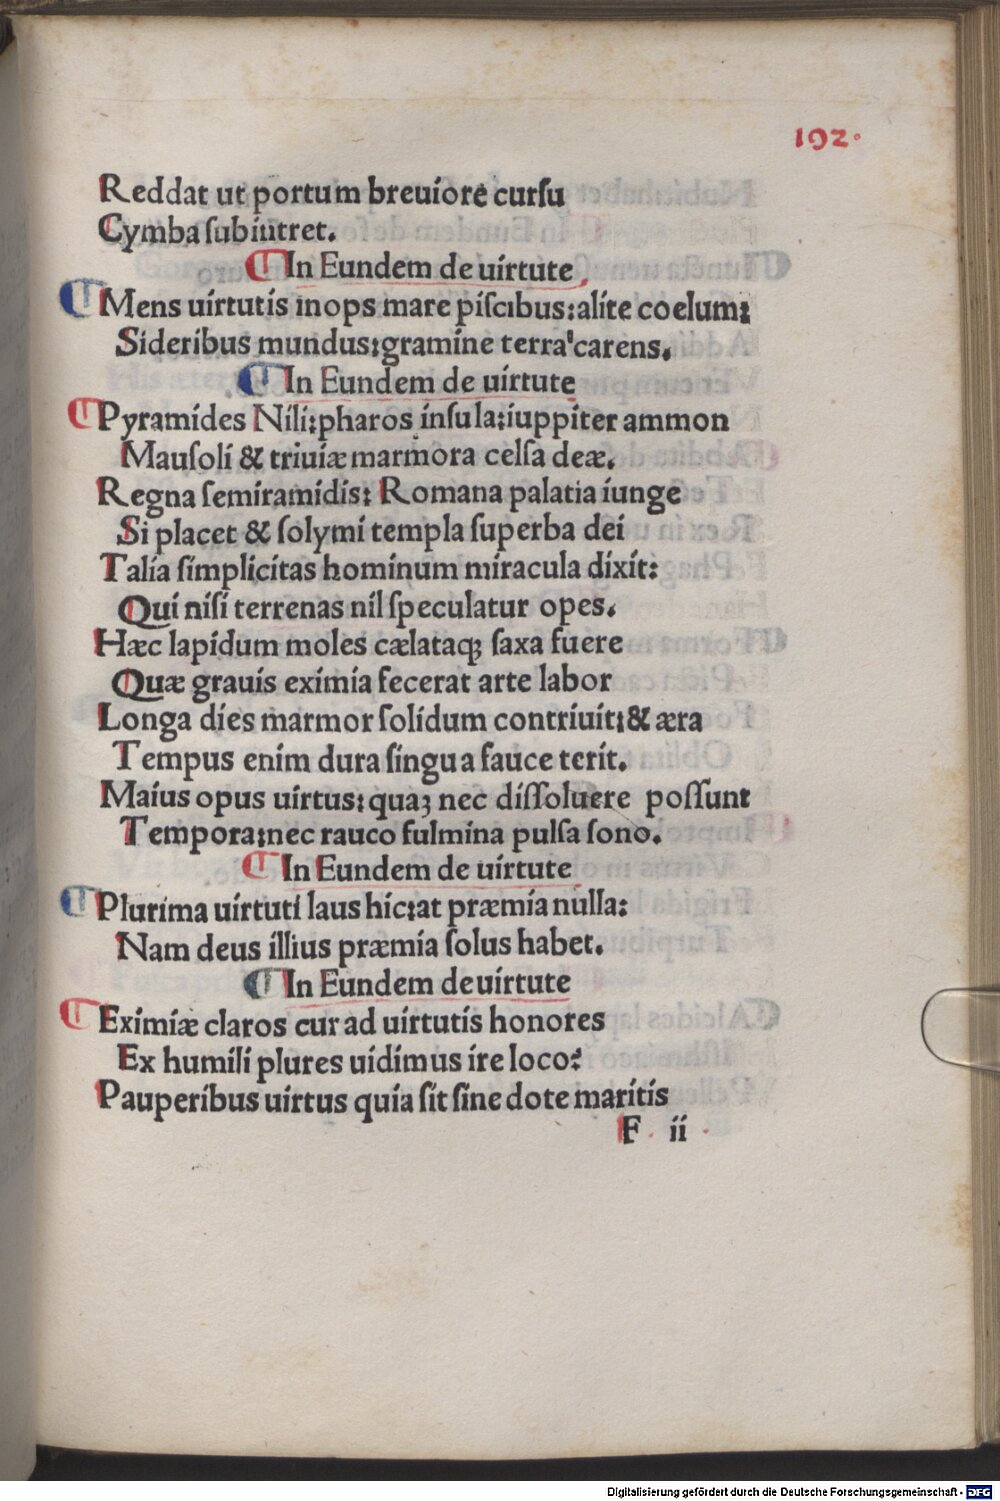 192.
Reddat ut portum breuiore curſu
Cymba ſubintret.
¶ In Eundem de uirtute
¶ Mens uirtutis inops mare piſcibus: alite coelum:
Sideribus mundus: gramine terra carens.
¶ In Eundem de uirtute
¶ Pyramides Nili: pharos inſula: iuppiter ammon
Mauſoli & triuiæ marmora celſa deæ.
Regna ſemiramidis: Romana palatia iunge
Si placet & ſolymi templa ſuperba dei
Talia ſimplicitas hominum miracula dixit:
Qui niſi terrenas nil ſpeculatur opes.
Hæc lapidum moles cælataqꝫ ſaxa fuere
Quæ grauis eximia fecerat arte labor
Longa dies marmor ſolidum contriuit: & æra
Tempus enim dura ſingua fauce terit.
Maius opus uirtus: quaꝫ nec diſſoluere poſſunt
Tempora: nec rauco fulmina pulſa ſono.
¶ In Eundem de uirtute
¶ Plurima uirtuti laus hic: at præmia nulla:
Nam deus illius præmia ſolus habet.
¶ In Eundem de uirtute
¶ Eximiæ claros cur ad uirtutis honores
Ex humili plures uidimus ire loco?
Pauperibus uirtus quia ſit ſine dote maritis
F ii
Digitalisierung gefördert durch die Deutsche Forschungsgemeinschaft - DFG